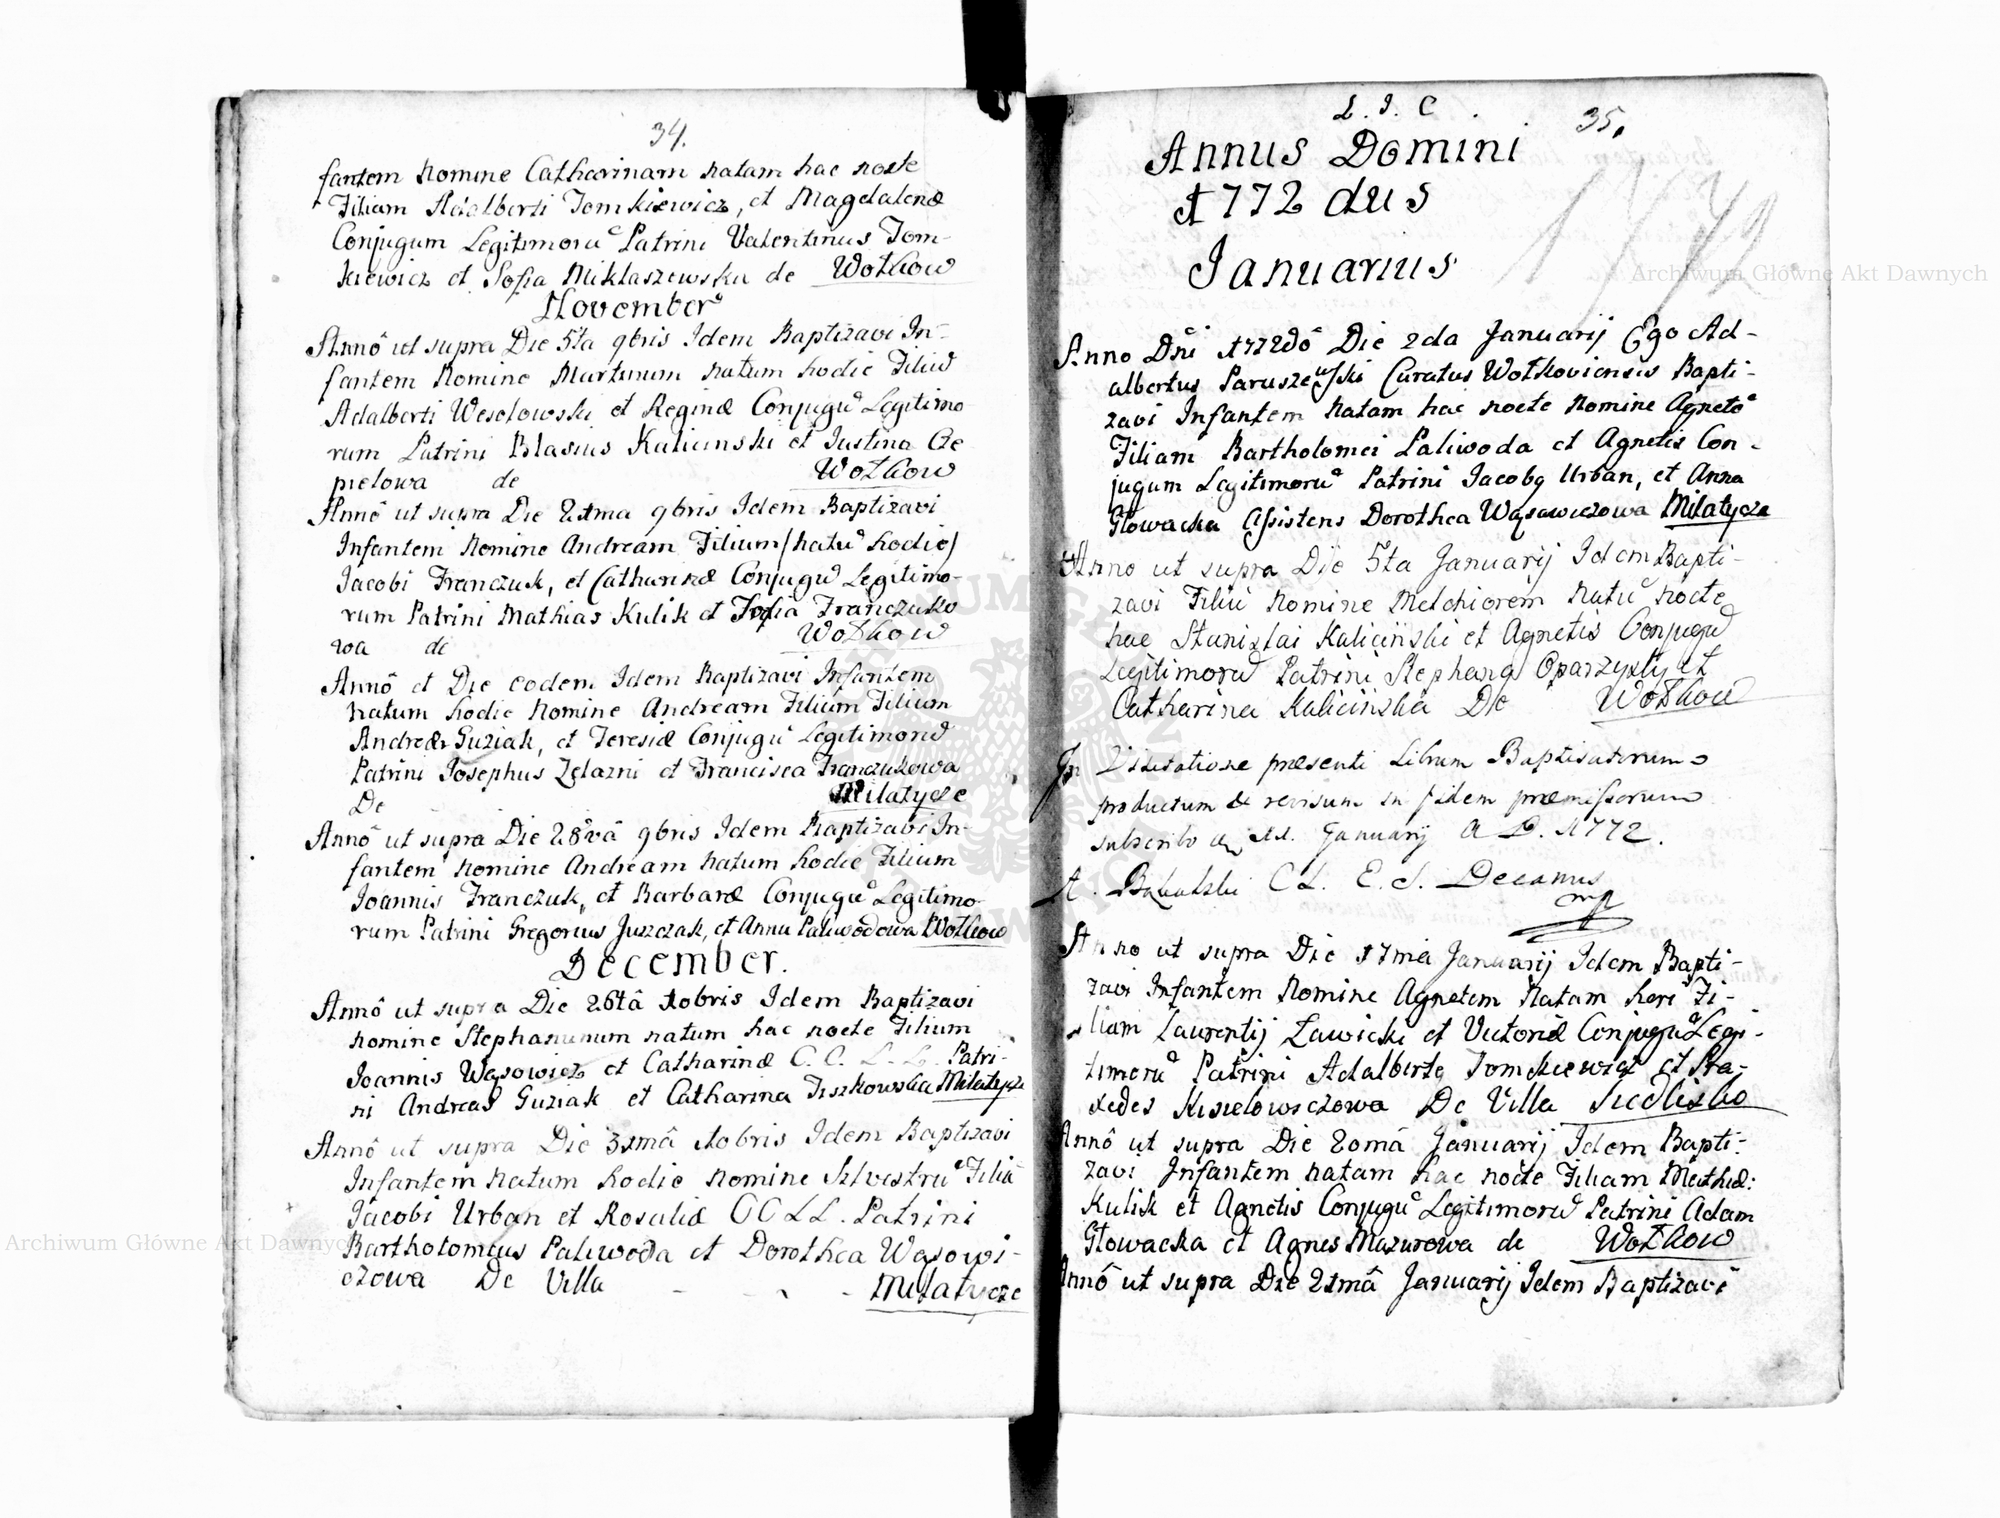 34.
fantem Nomine Catharinam natam hac nocte
Filiam Adalberti Tomkiewicz, et Magdalenæ
Conjugum Legitimorũ Patrini Valentinus Tom-
kiewicz et Sofia Miklaszewska de Wołkow
November
Annô ut supra Die 5ta 9bris Idem Baptizavi In-
fantem Nomine Martinum natum hodie Filiũ
Adalberti Wesołowski et Reginæ Conjugũ Legitimo-
rum Patrini Blasius Kalicinski et Justina Cie
pielowa de Wołkow
Annô ut supra Die 21ma 9bris Idem Baptizavi
Infantem Nomine Andream Filium/natũ hodie/
Jacobi Franczuk, et Catharinæ Conjugũ Legitimo-
rum Patrini Mathias Kulik et Zofia Franczuko
wa de Wołkow
Annô et Die eodem Idem Baptizavi Infantem
natum hodie Nomine Andream Filium Filium
Andreæ Guziak, et Teresiæ Conjugũ Legitimorũ
Patrini Josephus Zelazni et Francisca Franczukowa
De Milatycze
Annô ut supra Die 28vâ 9bris Idem Baptizavi In-
fantem Nomine Andream natum hodie Filium
Joannis Franczuk, et Barbaræ Conjugũ Legitimo
rum Patrini Gregorius Juszczak, et Anna Paliwodowa Wołkow
December.
Annô ut supra Die 26tâ Xobris Idem Baptizavi
Nomine Stephanumum natum hac nocte Filium
Joannis Wąsowicz et Catharinæ C. C. L. L. Patri-
ni Andreas Guziak et Catharina Tuszkowska Milatycze
Annô ut supra Die 31mâ Xobris Idem Baptizavi
Infantem natum hodie Nomine Silvestrũ Filiũ
Jacobi Urban et Rosaliæ C C L L. Patrini
Bartholomeus Paliwoda et Dorothea Wąsowi-
czowa De Villa - - - Milatycze
L. J. C. 35.
Annus Domini
1772 dus
1772
Januarius
Anno Dñi 1772dô Die 2da Januarij Ego Ad-
albertus Paruszewski Curatus Wołkoviensis Bapti-
zavi Infantem natam hac nocte Nomine Agnetẽ
Filiam Bartholomei Paliwoda et Agnetis Con-
jugum Legitimorũ Patrini Jacobg Urban, et Anna
Głowacka Assistens Dorothea Wąsowiczowa Milatycze
Anno ut supra Die 5ta Januarij Idem Bapti-
zavi Filiũ Nomine Melchiorem natũ nocte
hac Stanislai Kaliciński et Agnetis Conjugũ
Legitimorũ Patrini Stephang Oparzysty et
Catharina Kalicińska De Wołkow
In Visitatione præsenti Librum Baptisatorum
productum & revisum in fidem præmissorum
subscribo Januarij A D. 1772.
C L. E. S. Decanus
mp
Anno ut supra Die 17ma Januarij Idem Bapti-
zavi Infantem Nomine Agnetem natam heri Fi-
liam Laurentij Zawicki et Victoriæ Conjugũ Legi-
timorũ Patrini Adalbertg Tomckiewicz et Pra-
xedes Kisielowiczowa De Villa Siedlisko
Annô ut supra Die 20mâ Januarij Idem Bapti-
zavi Infantem natam hac nocte Filiam Mathiæ:
Kulik et Agnetis Conjugũ Legitimorũ Patrini Adam
Głowacka et Agnes Mazurowa de Wołkow
Annô ut supra Die 21mâ Januarij Idem Baptizavi
Archiwum Główne Akt Dawnych
Archiwum Główne Akt Dawnych